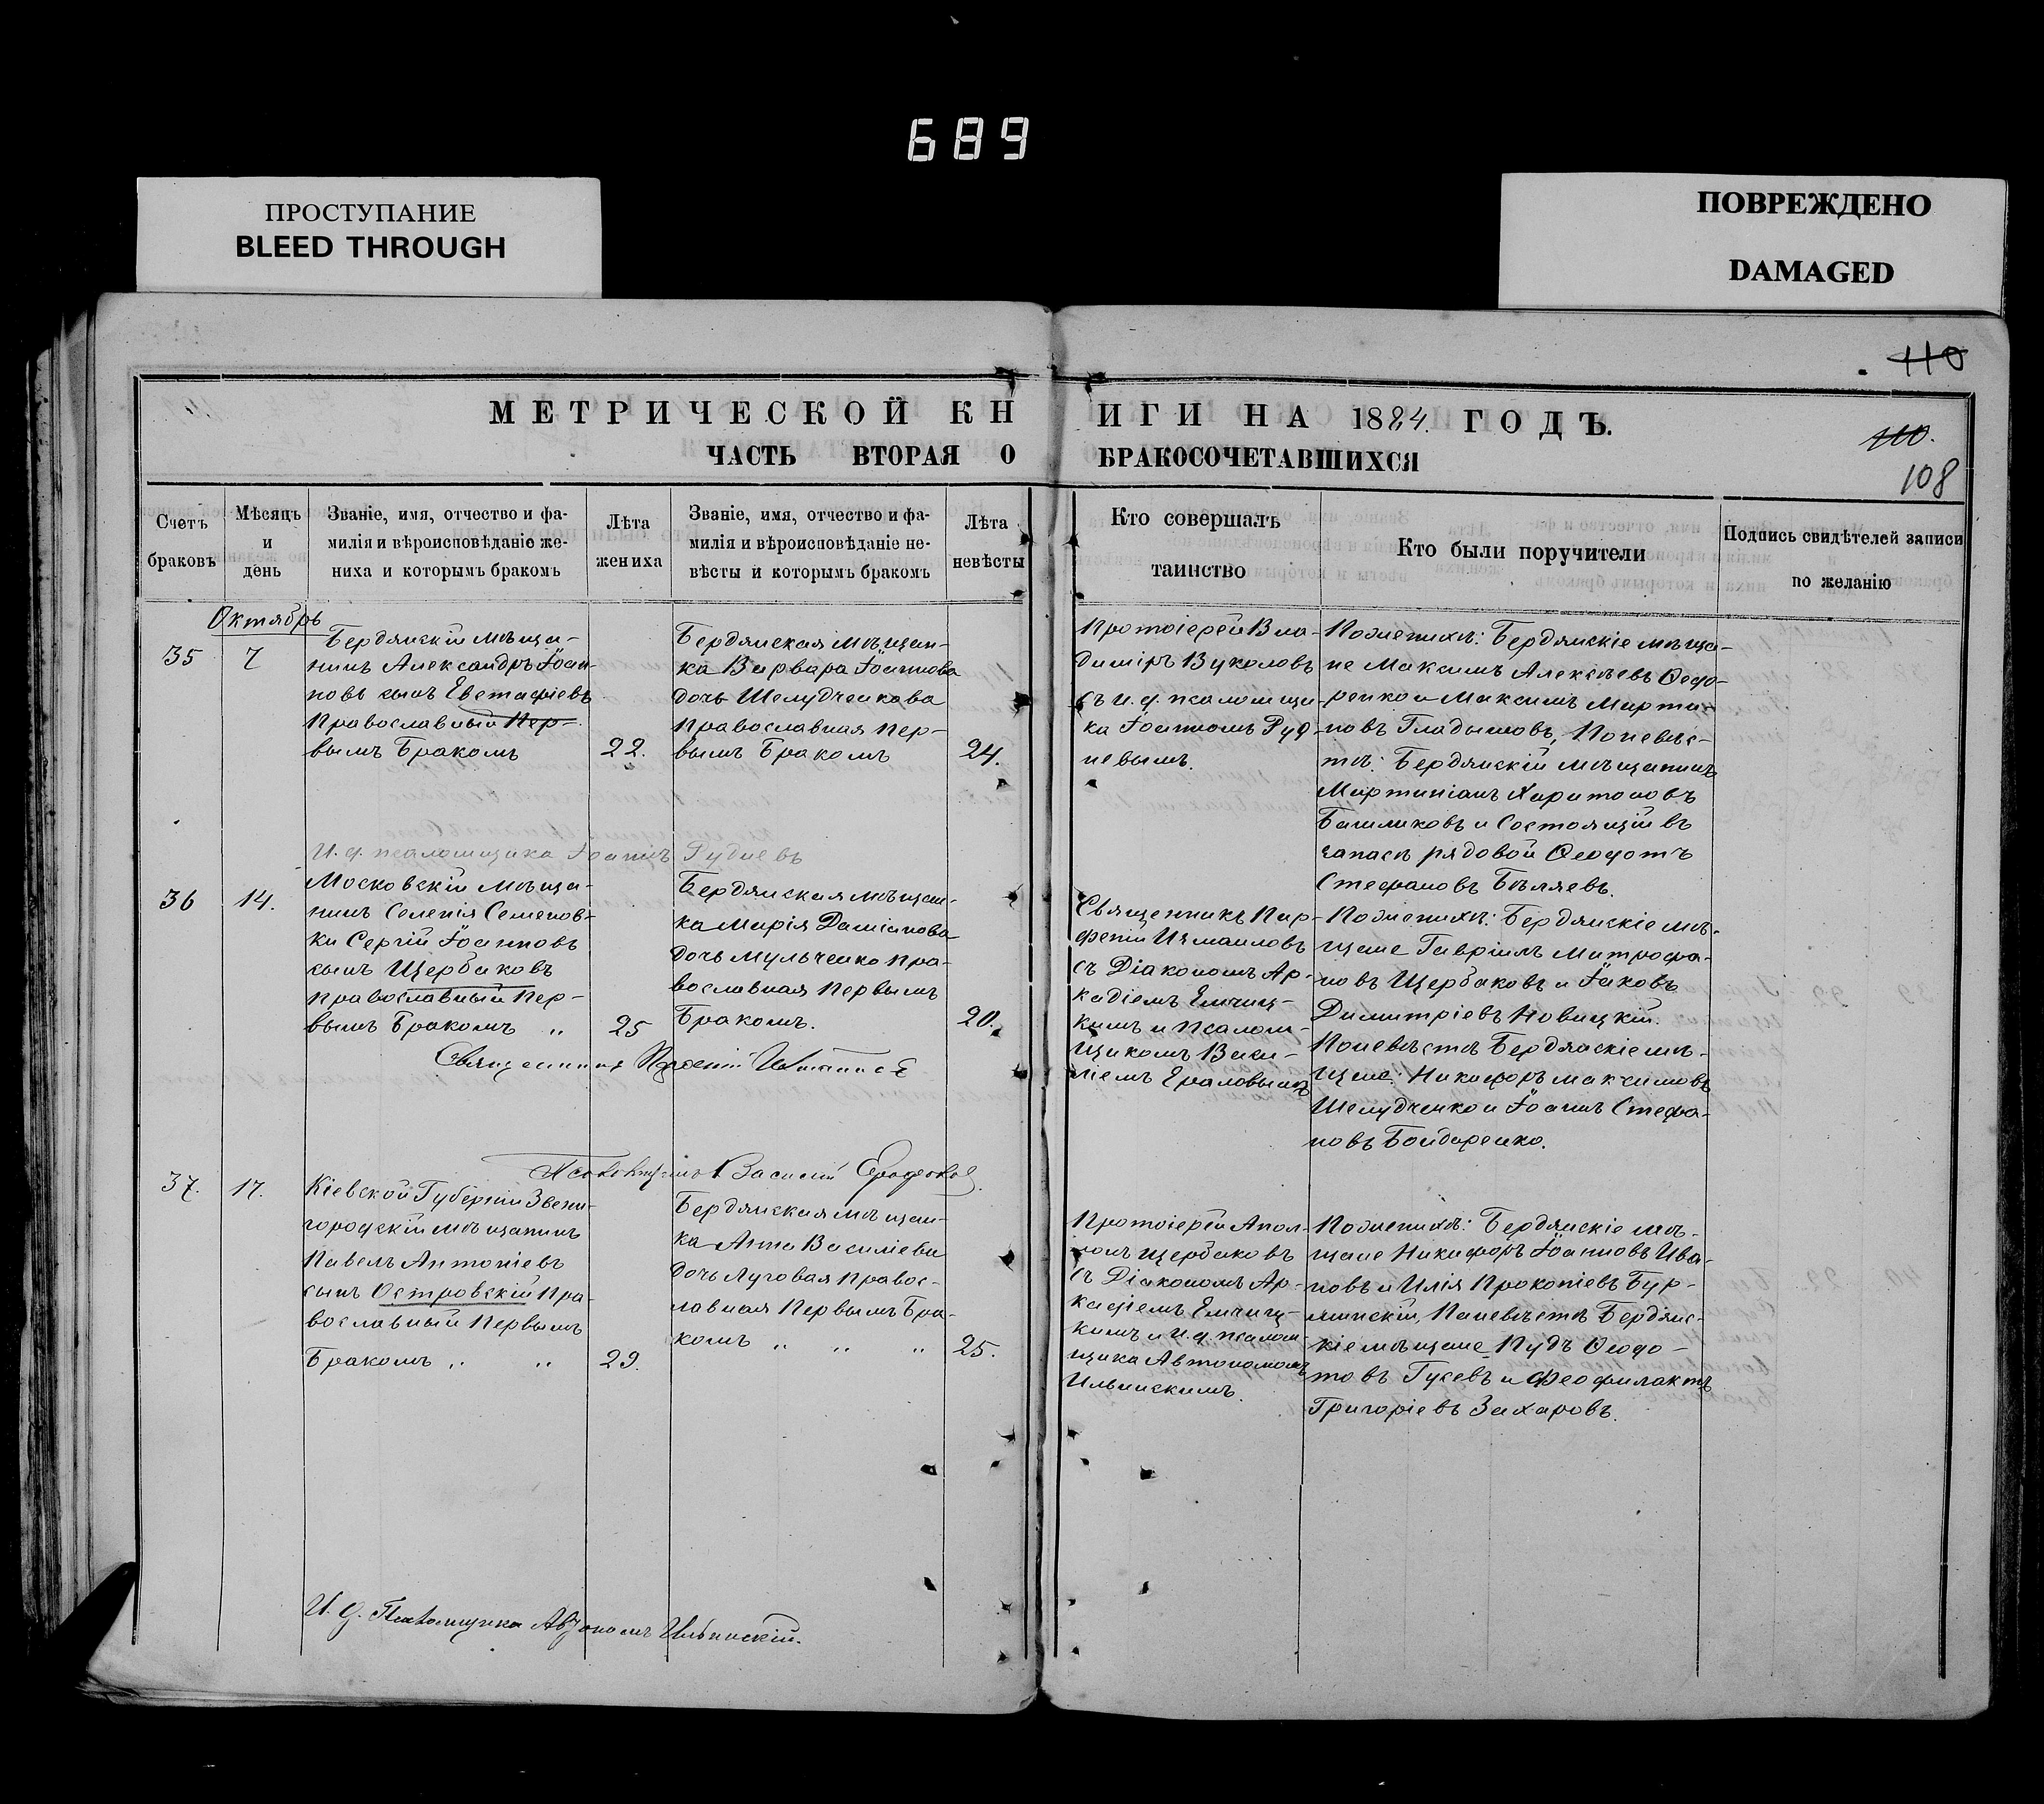 689
ПРОСТУПАНИЕ
BLEED THROUGH
ПОВРЕЖДЕНО
DAMAGED
110
МЕТРИЧЕСКОЙ КН
ИГИ НА 1884 ГОДЪ.
110.
108
ЧАСТЬ ВТОРАЯ О
БРАКОСОЧЕТАВШИХСЯ
Счетъ
браковъ
Мѣсяцъ
и
день
Званіе, имя, отчество и фа-
милія и вѣроисповѣданіе же-
ниха и которымъ бракомъ
Лѣта
жениха
Званіе, имя, отчество и фа-
милія и вѣроисповѣданіе не-
вѣсты и которымъ бракомъ
Лѣта
невѣсты
Кто совершалъ
таинство
Кто были поручители
Подпись свидѣтелей записи
по желанію
Октябрь
35
7
Бердянскій мѣща-
нинъ Александръ Іоан-
новъ сынъ Евстафіевъ
Православный Пер-
вымъ Бракомъ
22.
Бердянская мѣщан-
ка Варвара Іоаннова
дочь Шелудченкова
Православная Пер-
вымъ Бракомъ
24.
Протоіерей Вла-
диміръ Вуколовъ
съ и. д. псаломщи-
ка Іоанномъ Руд-
невымъ.
По женихѣ: Бердянскіе мѣща-
не Максимъ Алексѣевъ Ѳедо-
ренко и Максимъ Марти-
новъ Гладышовъ, По невѣс-
тѣ: Бердянскій мѣщанинъ
Мартиніанъ Харитоновъ
Башликовъ и Состоящій въ
запасѣ рядовой Ѳеодотъ
Стефановъ Бѣляевъ.
И. д. псаломщика Іоаннъ Рудневъ
36
14.
Московскій мѣща-
нинъ Селенія Семенов-
ки Сергій Іоанновъ
сынъ Щербаковъ
православный Пер-
вымъ Бракомъ „
25
Бердянская мѣщан-
ка Марія Даміанова
дочь Мульченко Пра-
вославная Первымъ
Бракомъ.
20.
Священникъ Пар-
феній Измаиловъ
съ Діакономъ Ар-
кадіемъ
кимъ и Псалом-
щикомъ Васи-
ліемъ
По женихѣ: Бердянскіе мѣ-
щане Гавріилъ Митрофа-
новъ Щербаковъ и Іаковъ
Димитріевъ Новицкій.
По невѣстѣ Бердянскіе мѣ-
щане: Никифоръ Максимовъ
Шелудченко и Іоаннъ Стефа-
новъ Бондаренко.
Священникъ Парфеній
Псаломщикъ Василій
37.
17.
Кіевской Губерніи Звени-
городскій мѣщанинъ
Павелъ Антоніевъ
сынъ Островскій Пра-
вославный Первымъ
Бракомъ „ „
29.
Бердянская мѣщан-
ка Анна Василіева
дочь Луговая Правос-
лавная Первымъ Бра-
комъ „ „ „
25.
Протоіерей Апол-
лонъ Щербаковъ
съ Діакономъ Ар-
кадіемъ
кимъ и и. д. псалом-
щика Автономомъ
Ильинскимъ.
По женихѣ: Бердянскіе мѣ-
щане Никифоръ Іоанновъ Ива-
новъ и Илія Прокопіевъ Бур-
минскій, По невѣстѣ Бердянс-
кіе мѣщане Пудъ Ѳеодо-
товъ Гусевъ и Феофилактъ
Григоріевъ Захаровъ.
И. д. Псаломщика Автономъ Ильинскій.